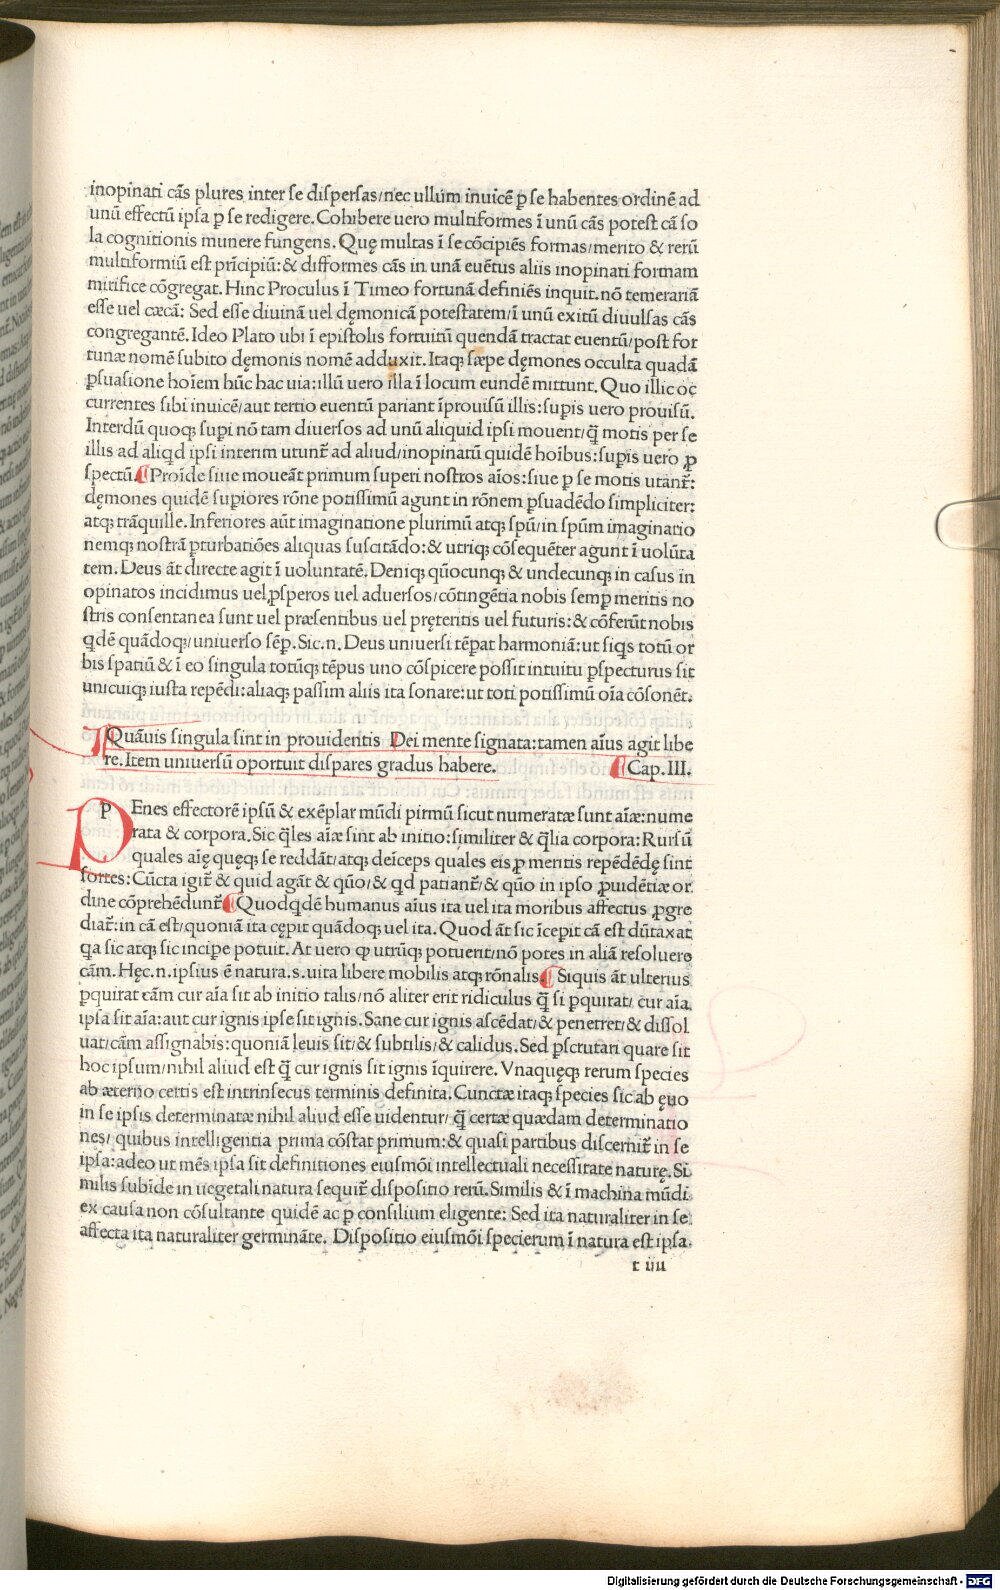 inopinati cās plures inter se dispersas/nec ullum inuicē p̱ se habentes ordinē ad
unū effectū ipsa p̱ se redigere. Cohibere uero multiformes ī unū cās potest cā so
la cognitionis munere fungens. Quę multas ī se cōcipiēs formas/merito & rerū
multiformiū est prīcipiū: & difformes cās in unā euētus aliis inopinati formam
mirifice cōgregat. Hinc Proculus ī Timeo fortunā definiēs inquit. nō temerariā
esse uel cæcā: Sed esse diuinā uel dęmonicā potestatem/ī unū exitū diuulsas cās
congregantē. Ideo Plato ubi ī epistolis fortuitū quendā tractat euentū/post for
tunæ nomē subito dęmonis nomē adduxit. Itaq; sæpe dęmones occulta quadā
p̱suasione hoīem hūc hac uia: illū uero illa ī locum eundē mittunt. Quo illic oc
currentes sibi inuicē/aut tertio euentū pariant īprouisū illis: sup̱is uero prouisū.
Interdū quoq; sup̱i nō tam diuersos ad unū aliquid ipsi mouent/q̄ motis per se
illis ad aliqd ipsi interim utunt̄ ad aliud/inopinatū quidē hoibus: sup̱is uero ꝓ
spectū. ¶ Proīde siue moueāt primum superi nostros aīos: siue p̱ se motis utant̄:
dęmones quidē sup̱iores rōne potissimū agunt in rōnem p̱suadēdo simpliciter:
atq; trāquille. Inferiores aūt imaginatione plurimū atq; spū/in spūm imaginatio
nemq; nostrā p̱turbatiōes aliquas suscitādo: & utriq; cōsequēter agunt ī uolūta
tem. Deus āt directe agit ī uoluntatē. Deniq; quōcunq; & undecunq; in casus in
opinatos incidimus uel ꝓsperos uel aduersos/cōtingētia nobis semp̱ meritis no
stris consentanea sunt uel præsentibus uel pręteritis uel futuris: & cōferūt nobis
qdē quādoq;/uniuerso sēp̱. Sic. n. Deus uniuersi tēp̱at harmoniā: ut siqs totū or
bis spatiū & ī eo singula totūq; tēpus uno cōspicere possit intuitu p̱specturus sit
unicuiq; iusta repēdi: aliaq; passim aliis ita sonare: ut toti potissimū oīa cōsonēt.
¶ Quāuis singula sint in prouidentis Dei mente signata: tamen aīus agit libe
re. Item uniuersū oportuit dispares gradus habere. ¶ Cap. III.
PEnes effectorē ipsū & exēplar mūdi pirmū sicut numeratæ sunt aīæ: nume
rata & corpora. Sic q̄les aīæ sint ab initio: similiter & q̄lia corpora: Rursū
quales aię quęq; se reddāt/atq; deīceps quales eis ꝓ meritis repēdēdę sint
sortes: Cūcta igit̄ & quid agāt & quō/& qd patiant̄/& quō in ipso ꝓuidētiæ or
dine cōprehēdunt̄ ¶ Quodqdē humanus aīus ita uel ita moribus affectus ꝓgre
diat̄: in cā est/quoniā ita cępit quādoq; uel ita. Quod āt sic īcepit cā est dūtaxat
qa sic atq; sic incipe potuit. At uero ꝙ utrūq; potuerit/nō potes in aliā resoluere
cām. Hęc. n. ipsius ē natura. s. uita libere mobilis atq; rōnalis. ¶ Siquis āt ulterius
p̱quirat cām cur aīa sit ab initio talis/nō aliter erit ridiculus q̄ si p̱quirat/ cur aīa
ipsa sit aīa: aut cur ignis ipse sit ignis. Sane cur ignis ascēdat/& penetret/& dissol
uat/cām assignabis: quoniā leuis sit/& subtilis/& calidus. Sed p̱scrutari quare sit
hoc ipsum/nihil aliud est q̄ cur ignis sit ignis īquirere. Vnaquęq; rerum species
ab æterno certis est intrinsecus terminis definita. Cunctæ itaq; species sic ab ęuo
in se ipsis determinatæ nihil aliud esse uidentur/ q̄ certæ quædam determinatio
nes/ quibus intelligentia prima cōstat primum: & quasi partibus discernit̄ in se
ipsa: adeo ut mēs ipsa sit definitiones eiusmōi intellectuali necessitate naturę. Si
milis subīde in uegetali natura sequit̄ dispositio rerū. Similis & ī machina mūdi
ex causa non cōsultante quidē ac p̱ consilium eligente: Sed ita naturaliter in se
affecta ita naturaliter germināte. Dispositio eiusmōi specierum ī natura est ipsa
t iiii
Digitalisierung gefördert durch die Deutsche Forschungsgemeinschaft - DFG